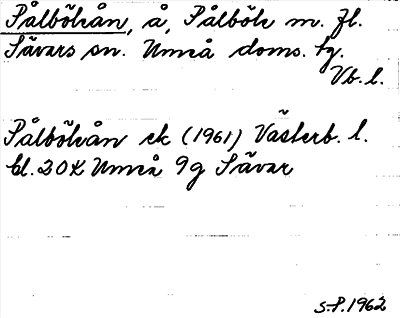 Pålböleån, å, Pålböle m. fl.
Sävars sn. Umeå doms. tg.
Vb. l.
Pålböleån ek (1961) Västerb. l.
bl. 20K Umeå 9g Sävar
S.P. 1962